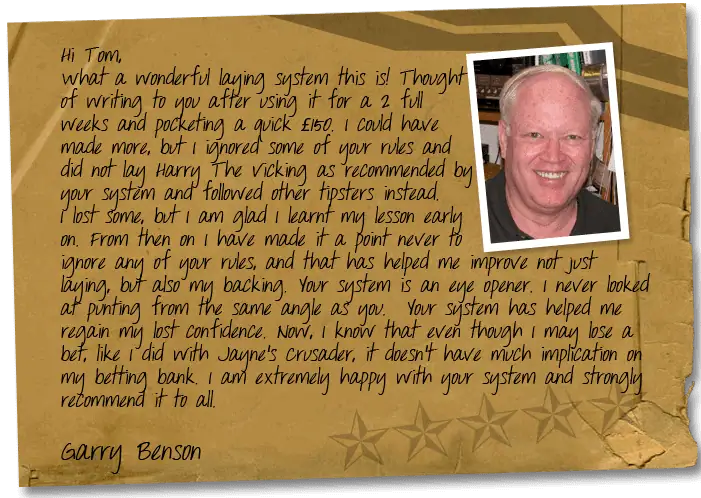 Hi Tom,
What a wonderful laying system this is! Thought
of writing to you after using it for a 2 full
weeks and pocketing a quick £150. I could have
made more, but I ignored some of your rules and
did not lay Harry The Vicking as recommended by
your system and followed other tipsters instead.
I lost some, but I am glad I learnt my lesson early
on. From then on I have made it a point never to
ignore any of your rules, and that has helped me improve not just
laying, but also my backing. Your system is an eye opener. I never looked
at punting from the same angle as you. Your system has helped me
regain my lost confidence. Now, I know that even though I may lose a
bet, like I did with Jayne's Crusader, it doesn't have much implication on
my betting bank. I am extremely happy with your system and strongly
recommend it to all.
Garry Benson